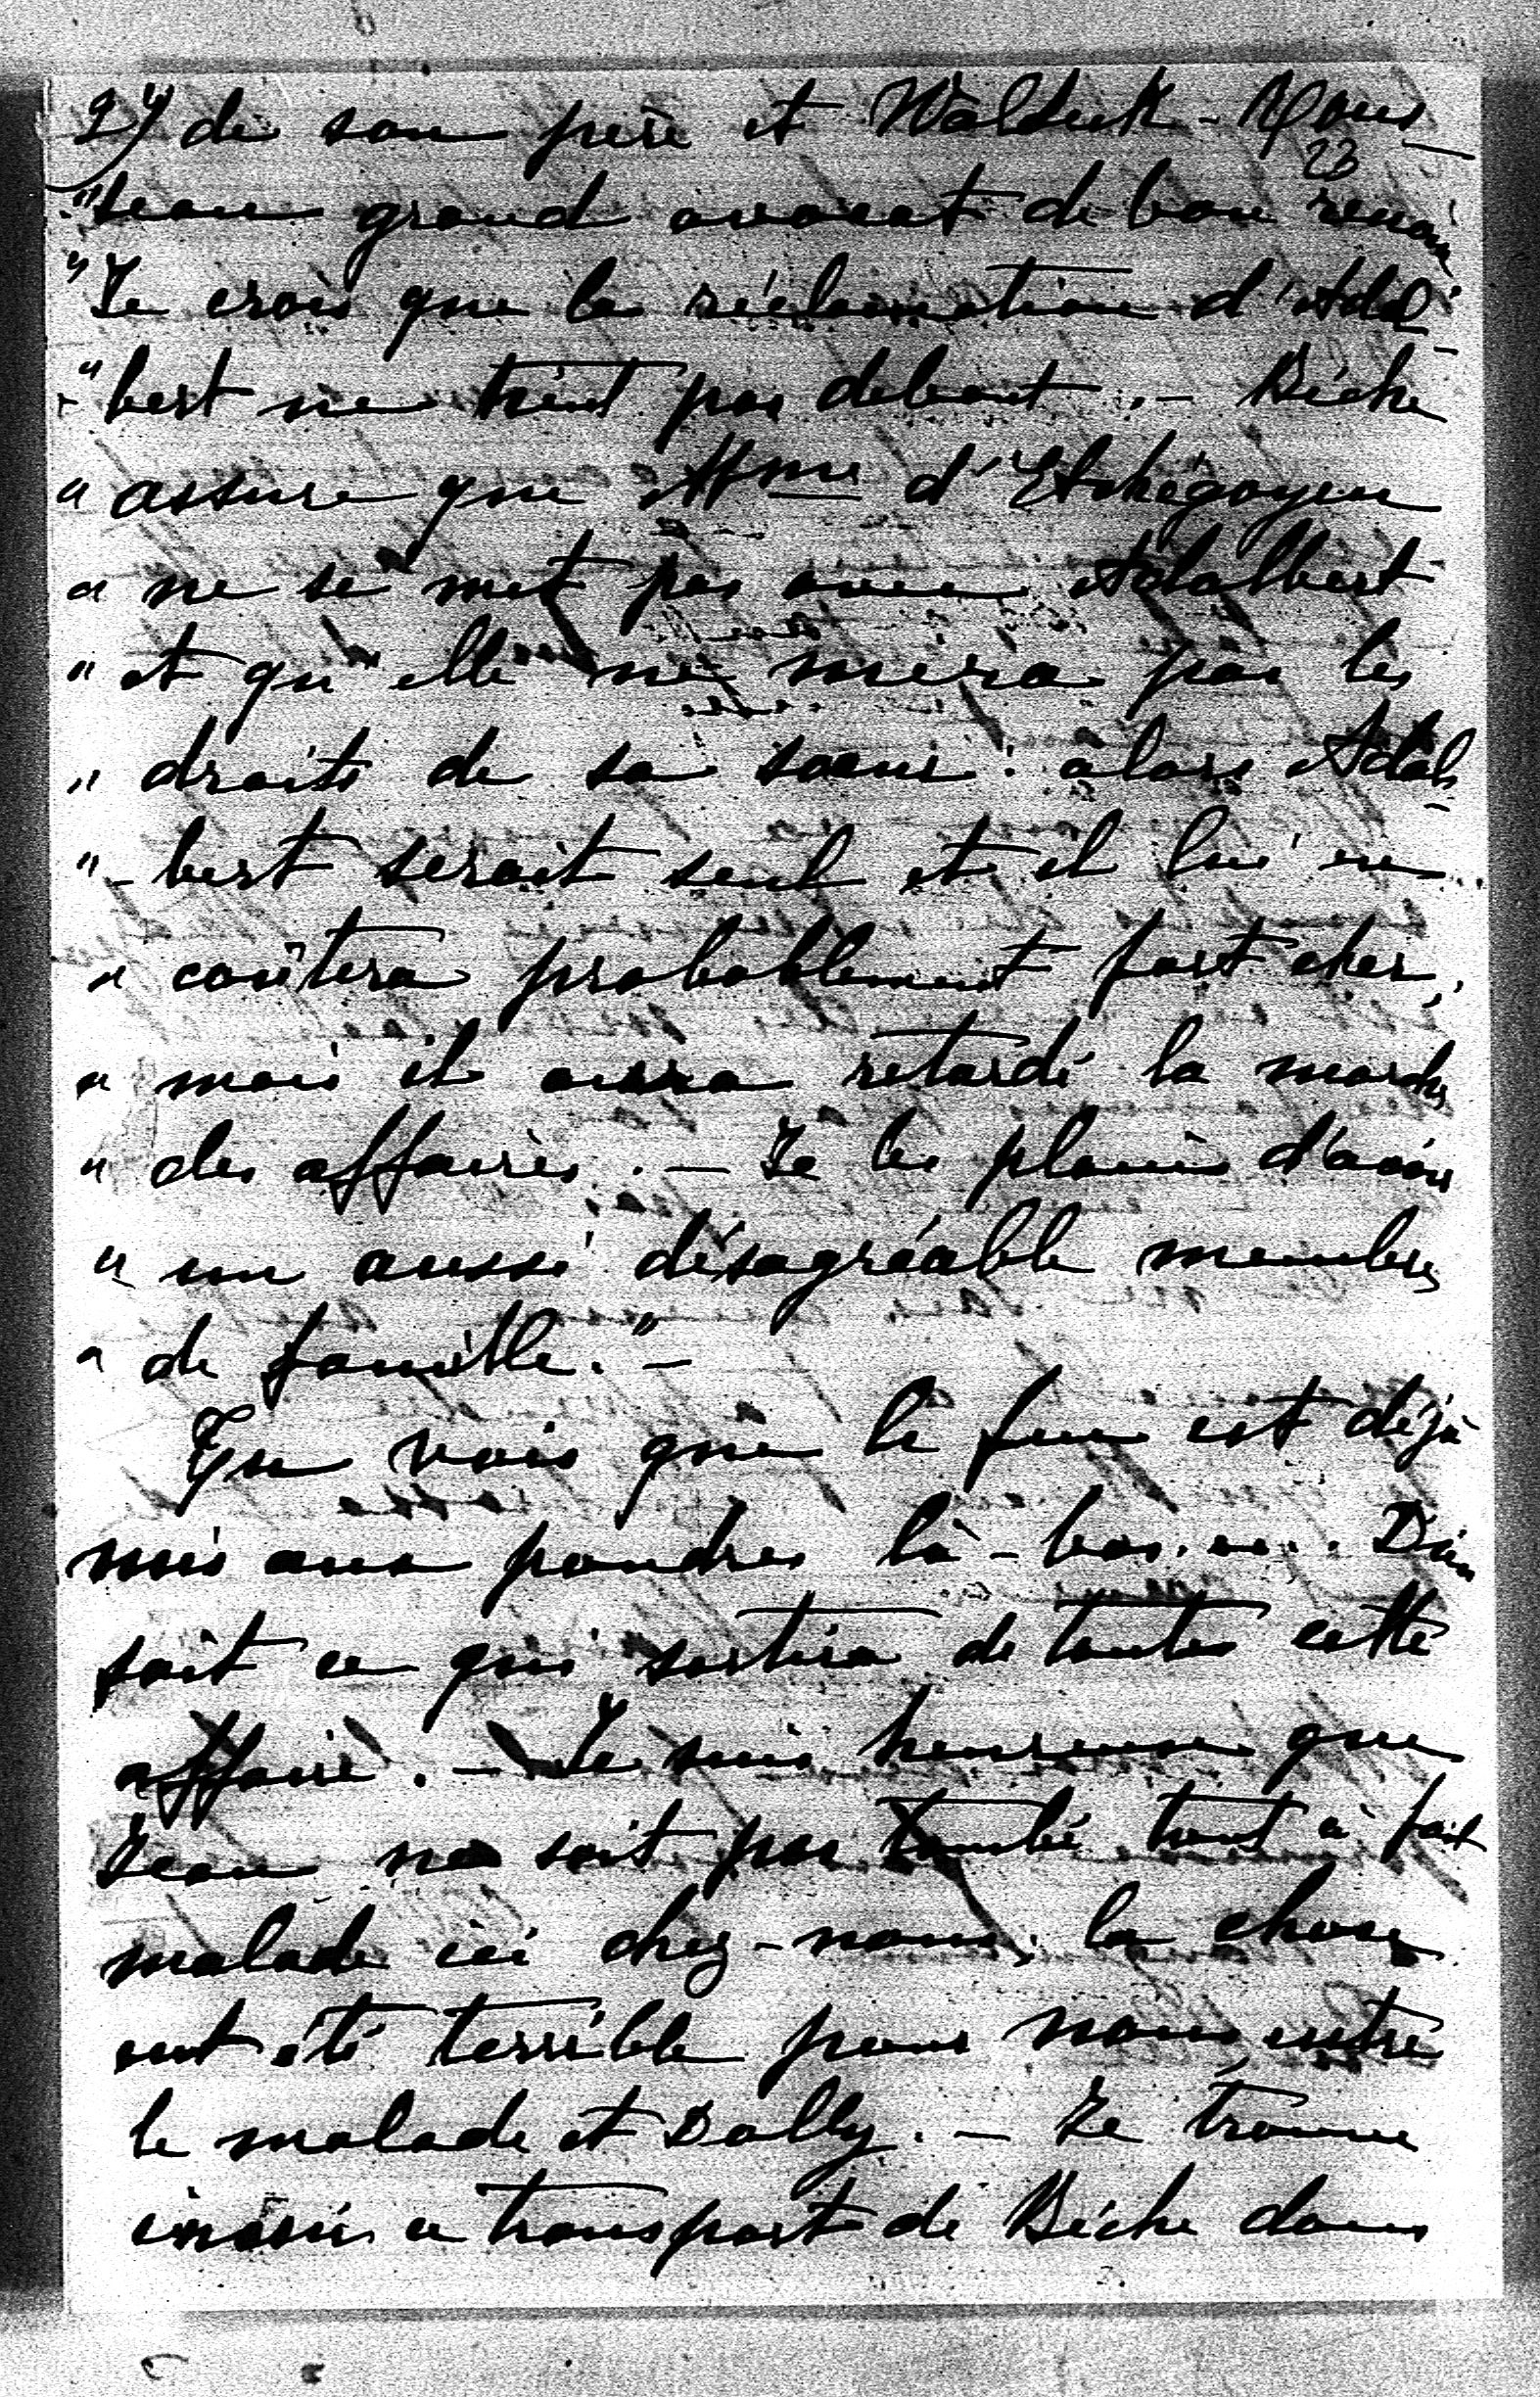 2) de son père et Waldeck-Rous-
23
"seau grand avocat de bon renom
"Je crois que la réclamation d'Adal-
"bert ne tient pas debout. – Bèche
" assure que Mme d'Etchégoyen
" ne se met pas avec Adalbert
" et qu'elle ne niera pas les
" droits de sa soeur: alors Adal-
"-bert serait seul et il lui en
" coûtera probablement fort cher,
" mais il aura retardé la marche
" des affaires. – Je les plains d'avoir
" un aussi désagréable membre
" de famille." –
Tu vois que le feu est déjà
mis aux poudres là-bas.... Dieu
sait ce qui sortira de toute cette
affaire. – Je suis heureuse que
Jean ne soit pas tombé tout à fait
malade ici chez-nous, la chose
eut été terrible pour nous, entre
le malade et Dolly. – Je trouve
inouï ce transport de Bèche dans